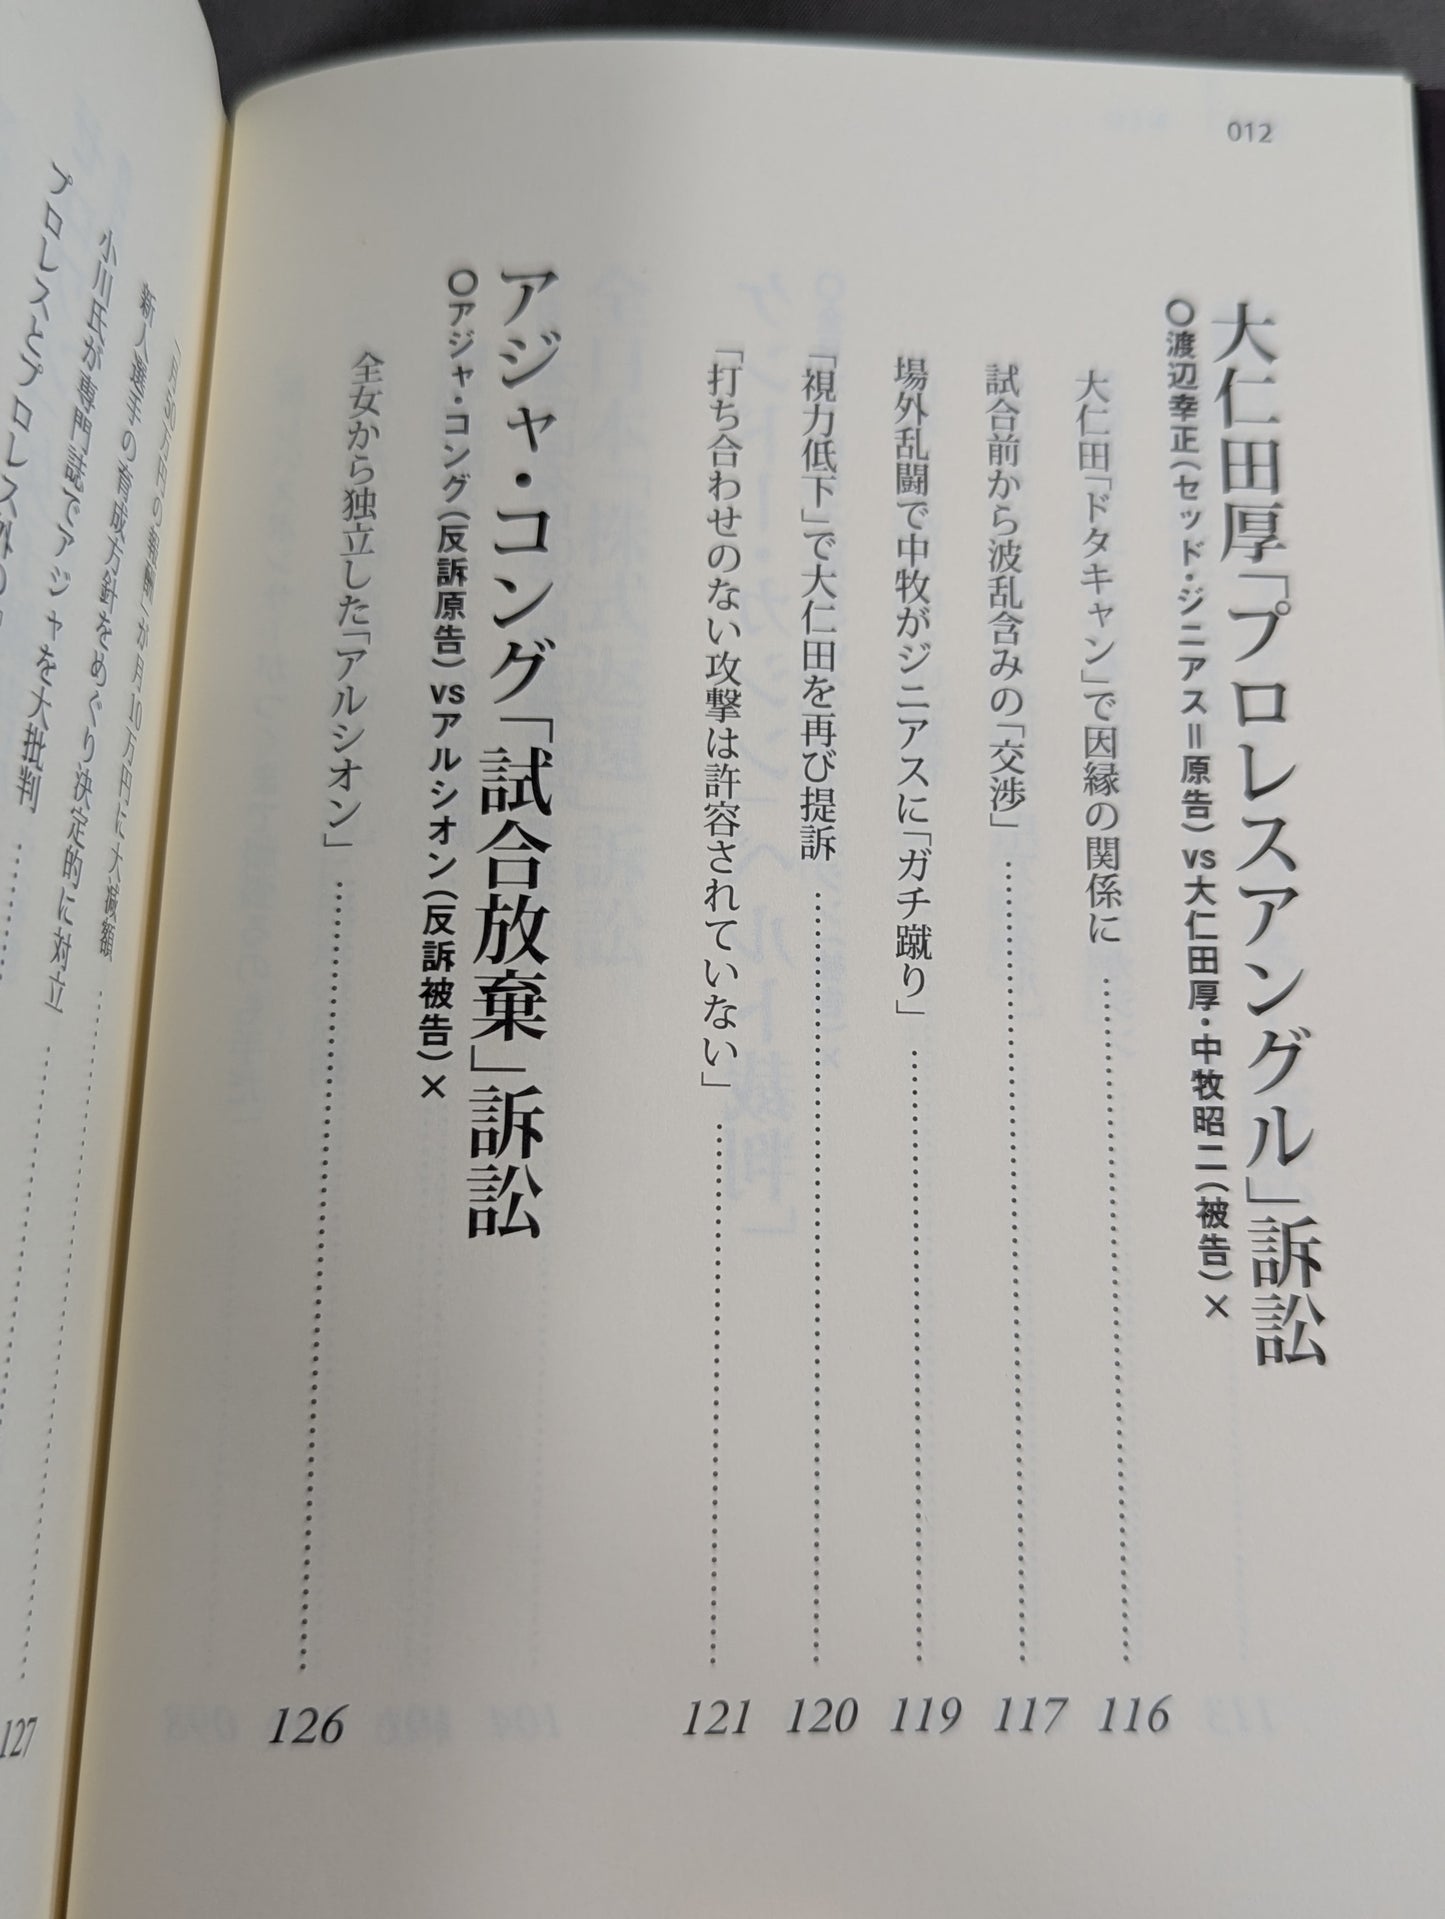 012
大仁田厚「プロレスアングル」訴訟
○渡辺幸正(セッド・ジニアス＝原告) vs 大仁田厚・中牧昭二(被告)×
大仁田「ドタキャン」で因縁の関係に …… 116
試合前から波乱含みの「交渉」 …… 117
場外乱闘で中牧がジニアスに「ガチ蹴り」 …… 119
「視力低下」で大仁田を再び提訴 …… 120
「打ち合わせのない攻撃は許容されていない」 …… 121
アジャ・コング「試合放棄」訴訟
○アジャ・コング(反訴原告) vs アルシオン(反訴被告)×
全女から独立した「アルシオン」 …… 126
「月50万円の報酬」が月10万円に大減額
新人選手の育成方針をめぐり決定的に対立
小川氏が専門誌でアジャを大批判
プロレスとプロレス外の
127